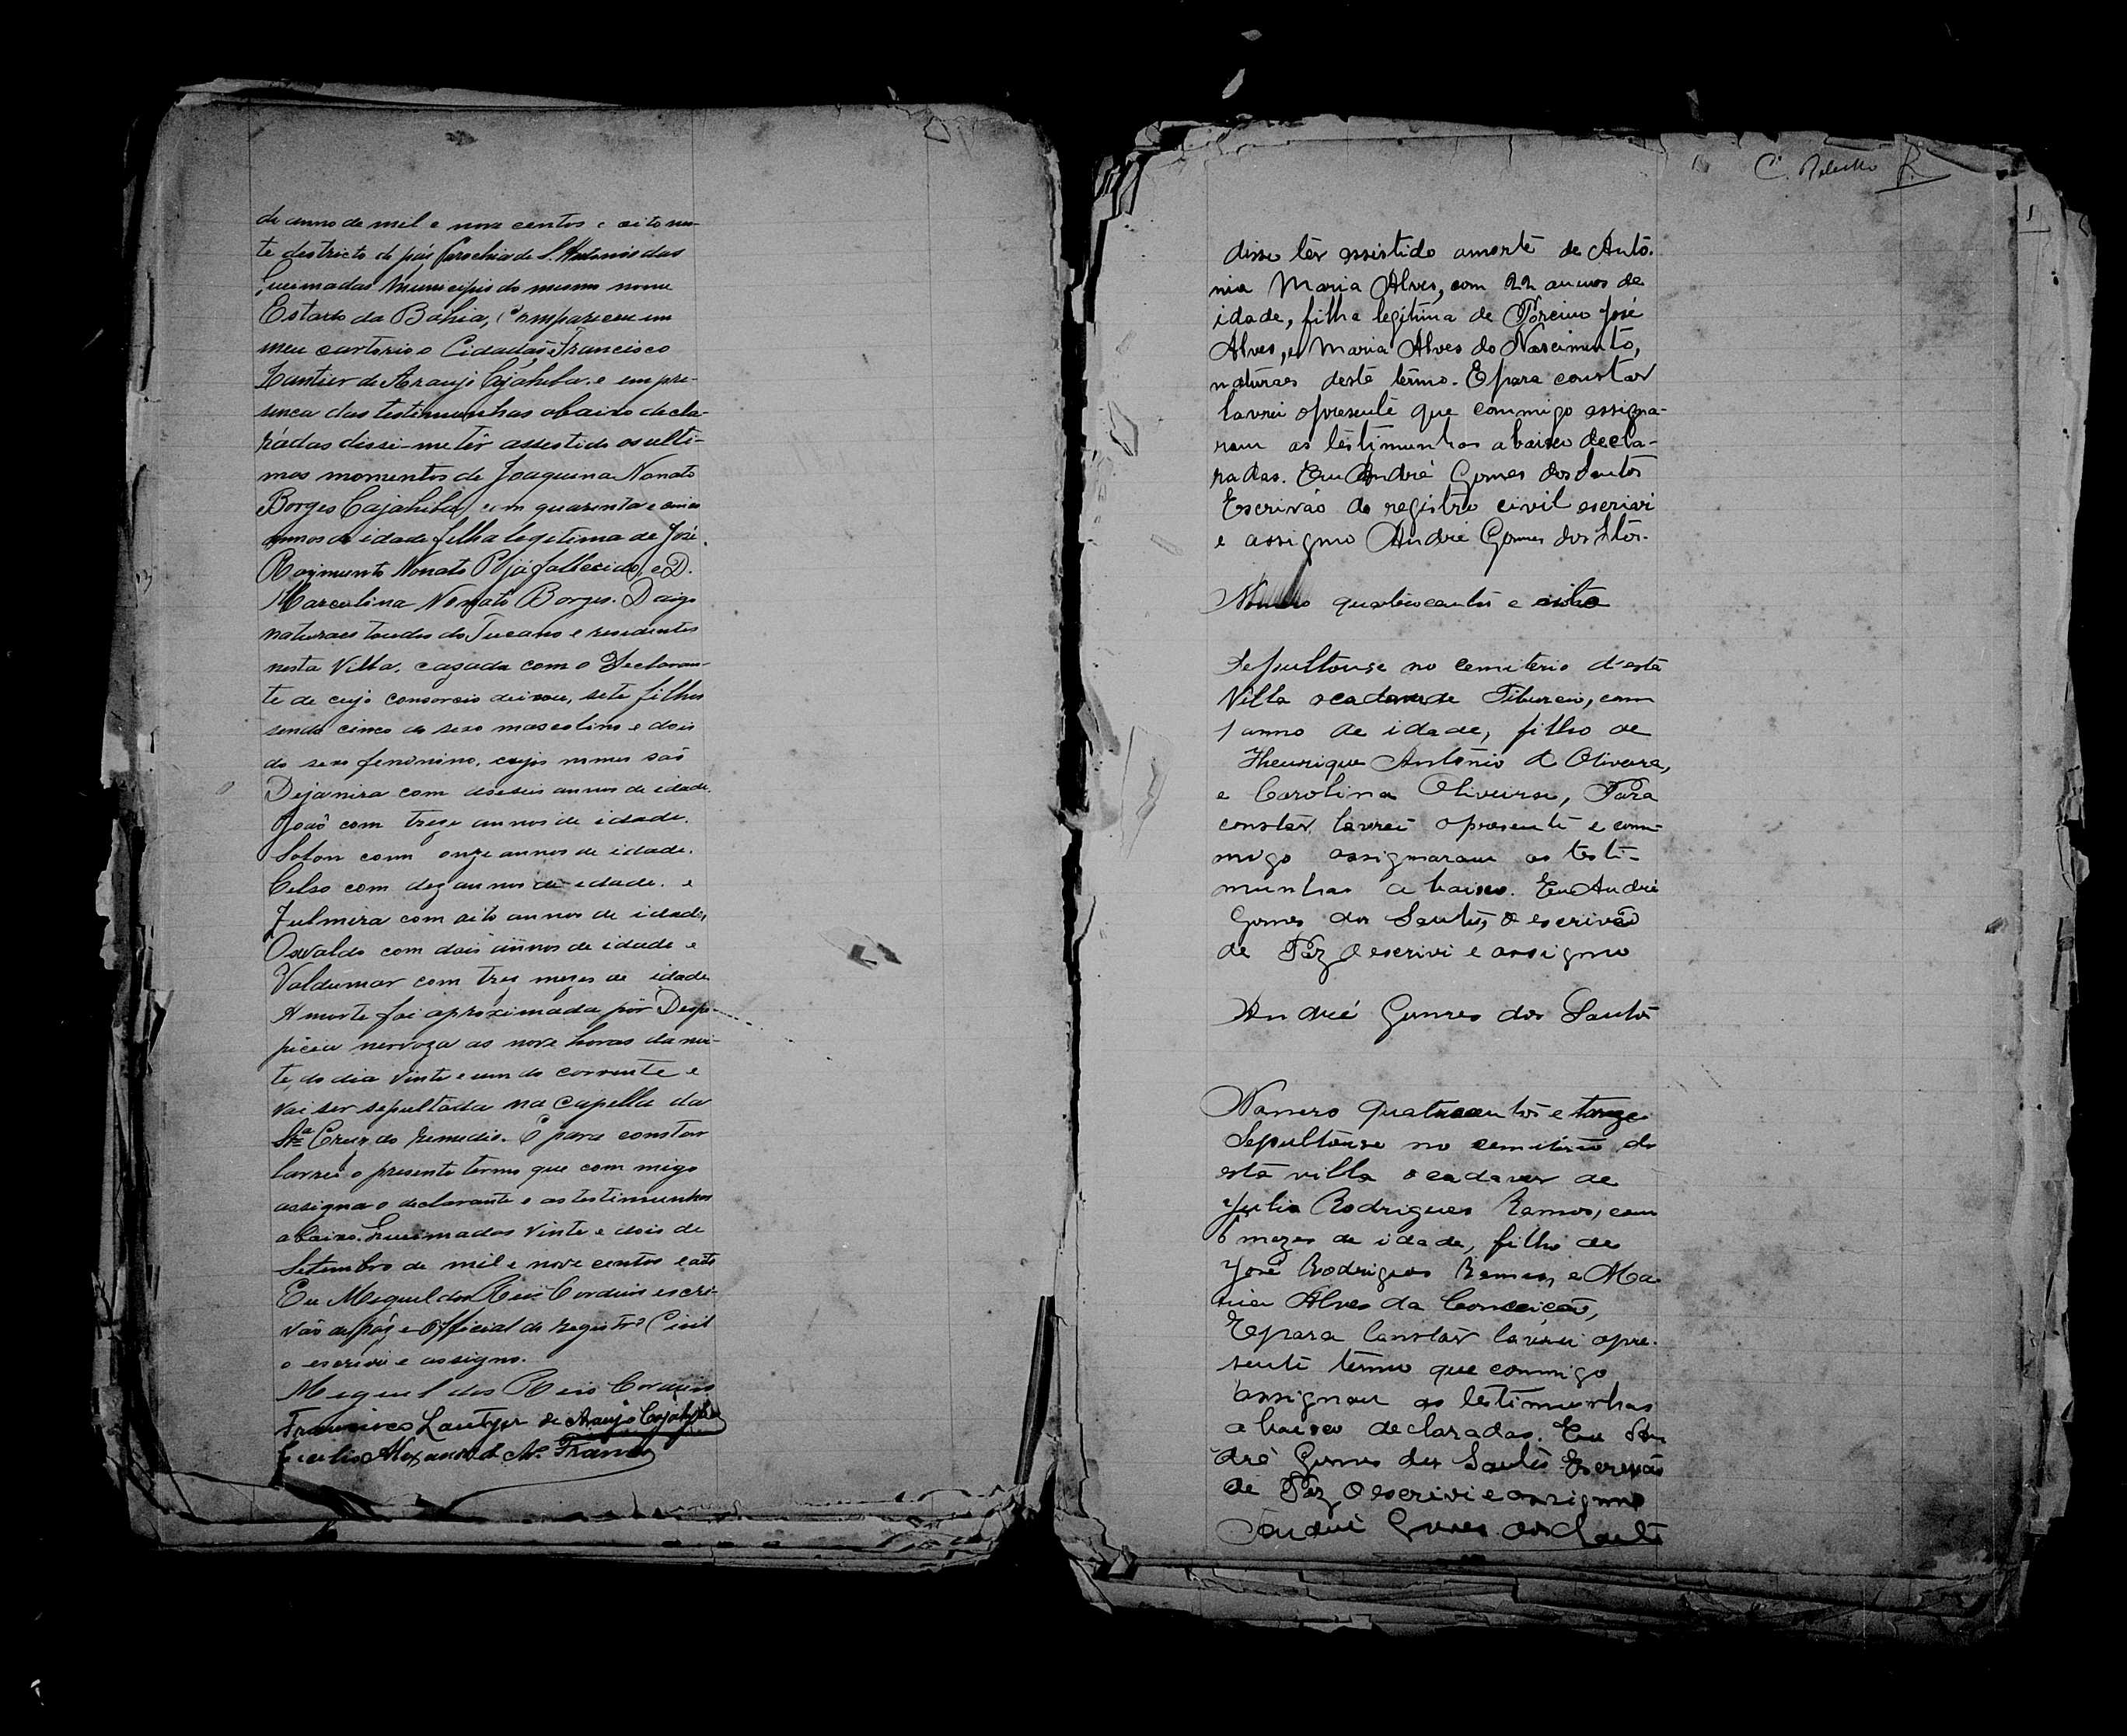 do anno de mil e nove centos e oito nes-
te destricto de páz Parochia de S. Antonio das
Queimadas Municipio do mesmo nome
Estado da Bahia, Compareceu em
meu cartorio o Cidadão Francisco
de Araujo Cajahiba, e em pre-
sença das testimunhas abaixo decla-
radas disse-me têr assestido os ulti-
mos momentos de Joaquina Nonato
Borges Cajahiba, com quarenta e cinco
annos de idade filha legitima de José
Raymundo Nonato já fallecido, e D.
Marculina Nonato Borges. Daigo
naturaes toudos do Tucano e residentes
nesta Villa, cazada com o Declaran-
te de cujo consorcio deixou, sete filhos
sendo cinco do sexo mascolino e dois
do sexo feminino, cujos nomes são
Dejanira com deseseis annos de idade.
João com treze annos de idade.
Solon com onze annos de idade.
Celso com dez annos de idade. e
Julmira com oito annos de idade,
Osvaldo com dois annos de idade e
Valdemar com trez mezes de idade
A morte foi aproximada pôr Despe-
picia nervoza as nove horas da noi-
te, do dia vinte e um do corrente e
vai ser sepultada na Capella da
Sta Cruz do Remedio. E para constar
lavrei o presente termo que com migo
assigna o declarante e as testimunhas
abaixo. Queimadas vinte e dois de
Setembro de mil e nove centos e oito
Eu Miguel dos Reis Cordeiro escri-
vão de páz e Official do registro Civil
o escrevi e assigno.
Miguel dos Reis Cordeiro
Francisco Lantyer de Araujo Cajahyba
C.
disse têr assistido a morte de Antô-
nia Maria Alves, com 22 annos de
idade, filha legitima de Porcino José
Alves, e Maria Alves do Nascimento,
naturaes deste têrmo. E para constar
lavrei o presente que commigo assigna-
ram as têstimunhas abaixo decla-
radas. Eu André Gomes dos Santos
Escrivão do registro civil escrivi
e assigno André Gomes dos Stos.
Número quatrocentos e oito
Sepultouse no cemiterio d'esta
Villa o cadaver de Tiburcio, com
1 anno de idade, filho de
Henrique Antônio de Oliveira,
e Carolina Oliveira, Para
constar, lavrei o presente e com-
migo assignaram as testi-
munhas abaixo. Eu André
Gomes dos Santos, o escrivão
de Paz o escrivi e assigno
André Gomes dos Santos
Número quatrocentos e
Sepultouse no cemiterio de
esta villa o cadaver de
Julio Rodrigues Ramos, com
6 mezes de idade, filho de
José Rodrigues Ramos, e Ma-
ria Alves da Conceição,
E para Constar lavrei o pre-
sente têrmo que commigo
assignam as testimunhas
abaixo declaradas. Eu An-
dré Gomes dos Santos Escrivão
de Paz o escrivi e assigno
André Gomes dos Santos